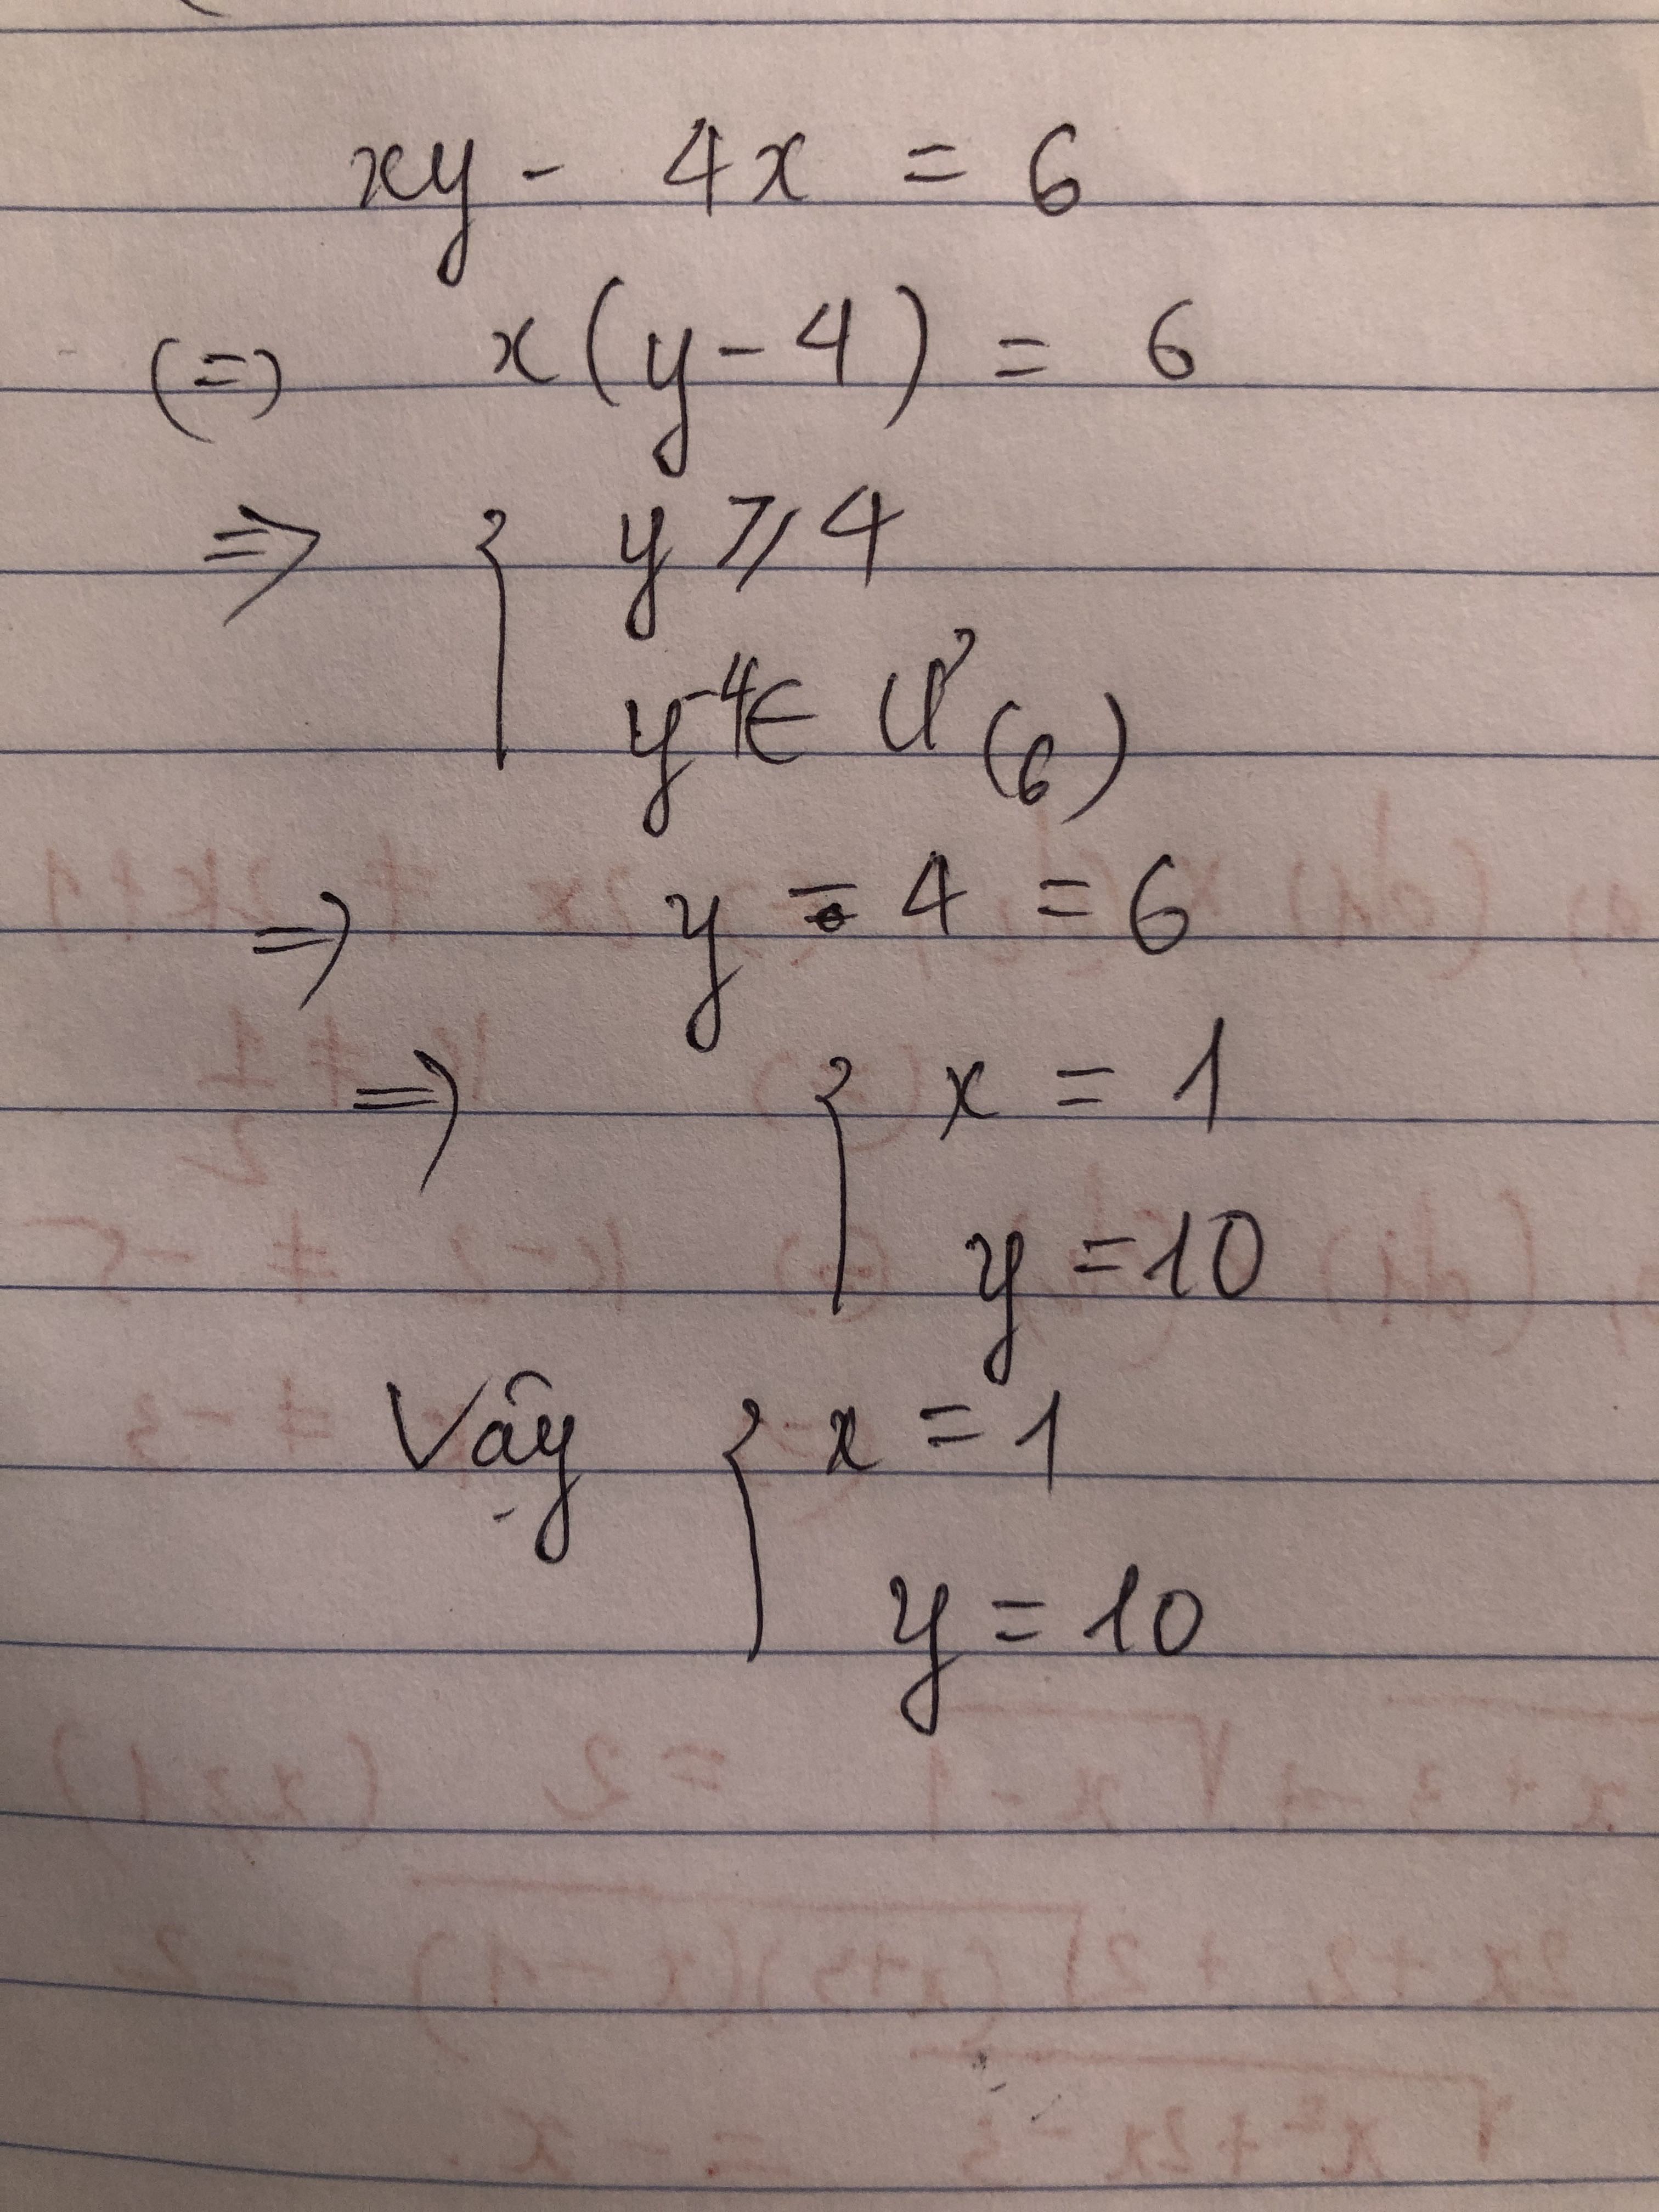 xy - 4x = 6
(=) x(y-4) = 6
=> { y ⩾ 4
y-4 ∈ Ư(6)
=) y - 4 = 6
=) { x = 1
y = 10
Vậy { x = 1
y = 10